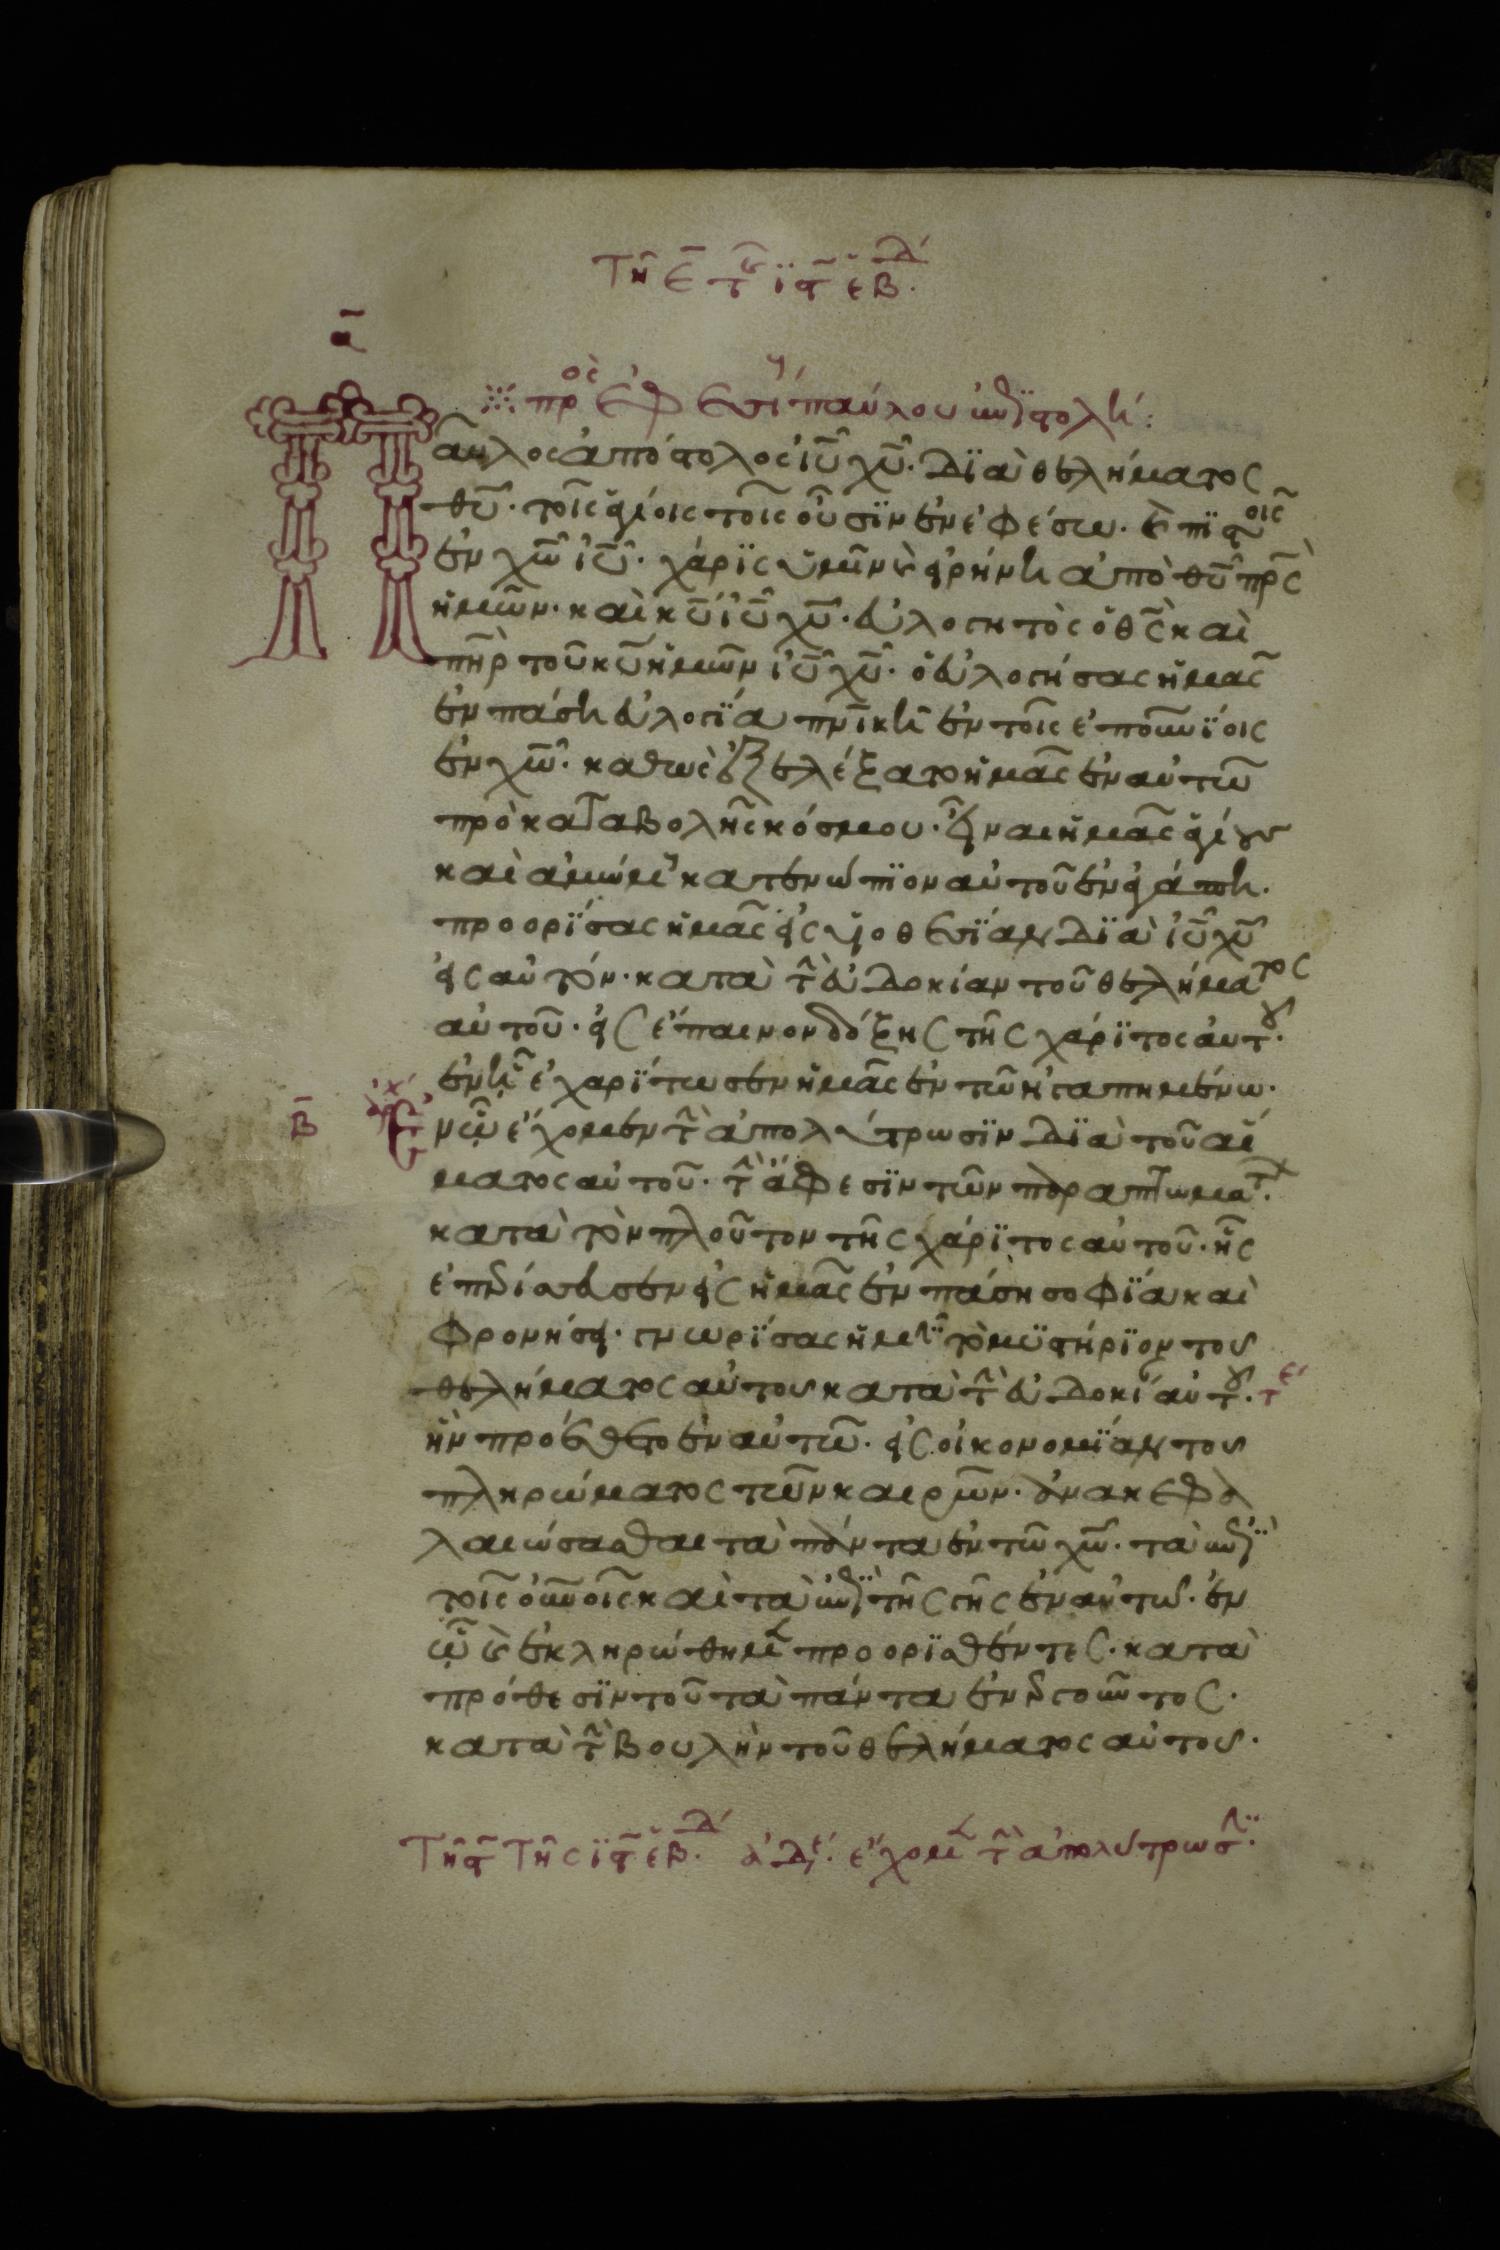 Τῆ ε̄ τῆς ιϛ̄ ἑβδ.
ᾱ
πρὸς Ἐφεσίους παύλου ἐπιστολή:
Παῦλος ἀπόστολος ἰῡ χῡ. διὰ θελήματος
θῡ. τοῖς ἁγίοις τοῖς οὖσιν ἐν ἐφέσω. καὶ πιστοῖς
ἐν χω̄ ἰῡ. χάρις ὑμῖν καὶ εἰρήνη ἀπὸ θῡ πρ̄ς
ἡμῶν. καὶ κῡ ἰῡ χῡ. εὐλογητὸς ὁ θς̄ καὶ
πηρ̄ τοῦ κῡ ἡμῶν ἰῡ χῡ. ὁ εὐλογήσας ἡμᾶς
ἐν πάση εὐλογία πνικῆ ἐν τοῖς ἐπουνίοις
ἐν χω̄. καθὼς ἐξελέξατο ἡμᾶς ἐν αὐτῶ
πρὸ καταβολῆς κόσμου. εἶναι ἡμᾶς ἁγίους
καὶ ἀμώμους κατενώπιον αὐτοῦ ἐν ἀγάπη.
προορίσας ἡμᾶς εἰς υἱοθεσίαν διὰ ἰῡ χῡ
εἰς αὐτόν. κατὰ τὴν εὐδοκίαν τοῦ θελήματος
αὐτοῦ. εἰς ἔπαινον δόξης τῆς χάριτος αὐτοῦ.
ἐν ἧ ἐχαρίτωσεν ἡμᾶς ἐν τῶ ἠγαπημένω.
β̄ Ἐν ὧ ἔχομεν τὴν ἀπολύτρωσιν διὰ τοῦ αἵ
ματος αὐτοῦ. τὴν ἄφεσιν τῶν παραπτωμάτων.
κατὰ τὸν πλοῦτον τῆς χάριτος αὐτοῦ. ἧς
ἐπερίσσευσεν εἰς ἡμᾶς ἐν πάση σοφία καὶ
φρονήσει. γνωρίσας ἡμῖν τὸ μυστήριον τοῦ
θελήματος αὐτοῦ κατὰ τὴν εὐδοκίαν αὐτοῦ. τε
ἣν προέθετο ἐν αὐτῶ. εἰς οἰκονομίαν τοῦ
πληρώματος τῶν καιρῶν. ἀνακεφα
λαιώσασθαι τὰ πάντα ἐν τῶ χω̄. τὰ ἐπὶ
τοῖς οὐνοῖς καὶ τὰ ἐπὶ τῆς γῆς ἐν αὐτῶ. ἐν
ὧ καὶ ἐκληρώθημεν προορισθέντες. κατὰ
πρόθεσιν τοῦ τὰ πάντα ἐνεργοῦντος.
κατὰ τὴν βουλὴν τοῦ θελήματος αὐτοῦ.
Τῆ ϛ̄ τῆς ιϛ̄ ἑβδ. ἀδε. ἔχομεν τὴν ἀπολύτρωσιν.